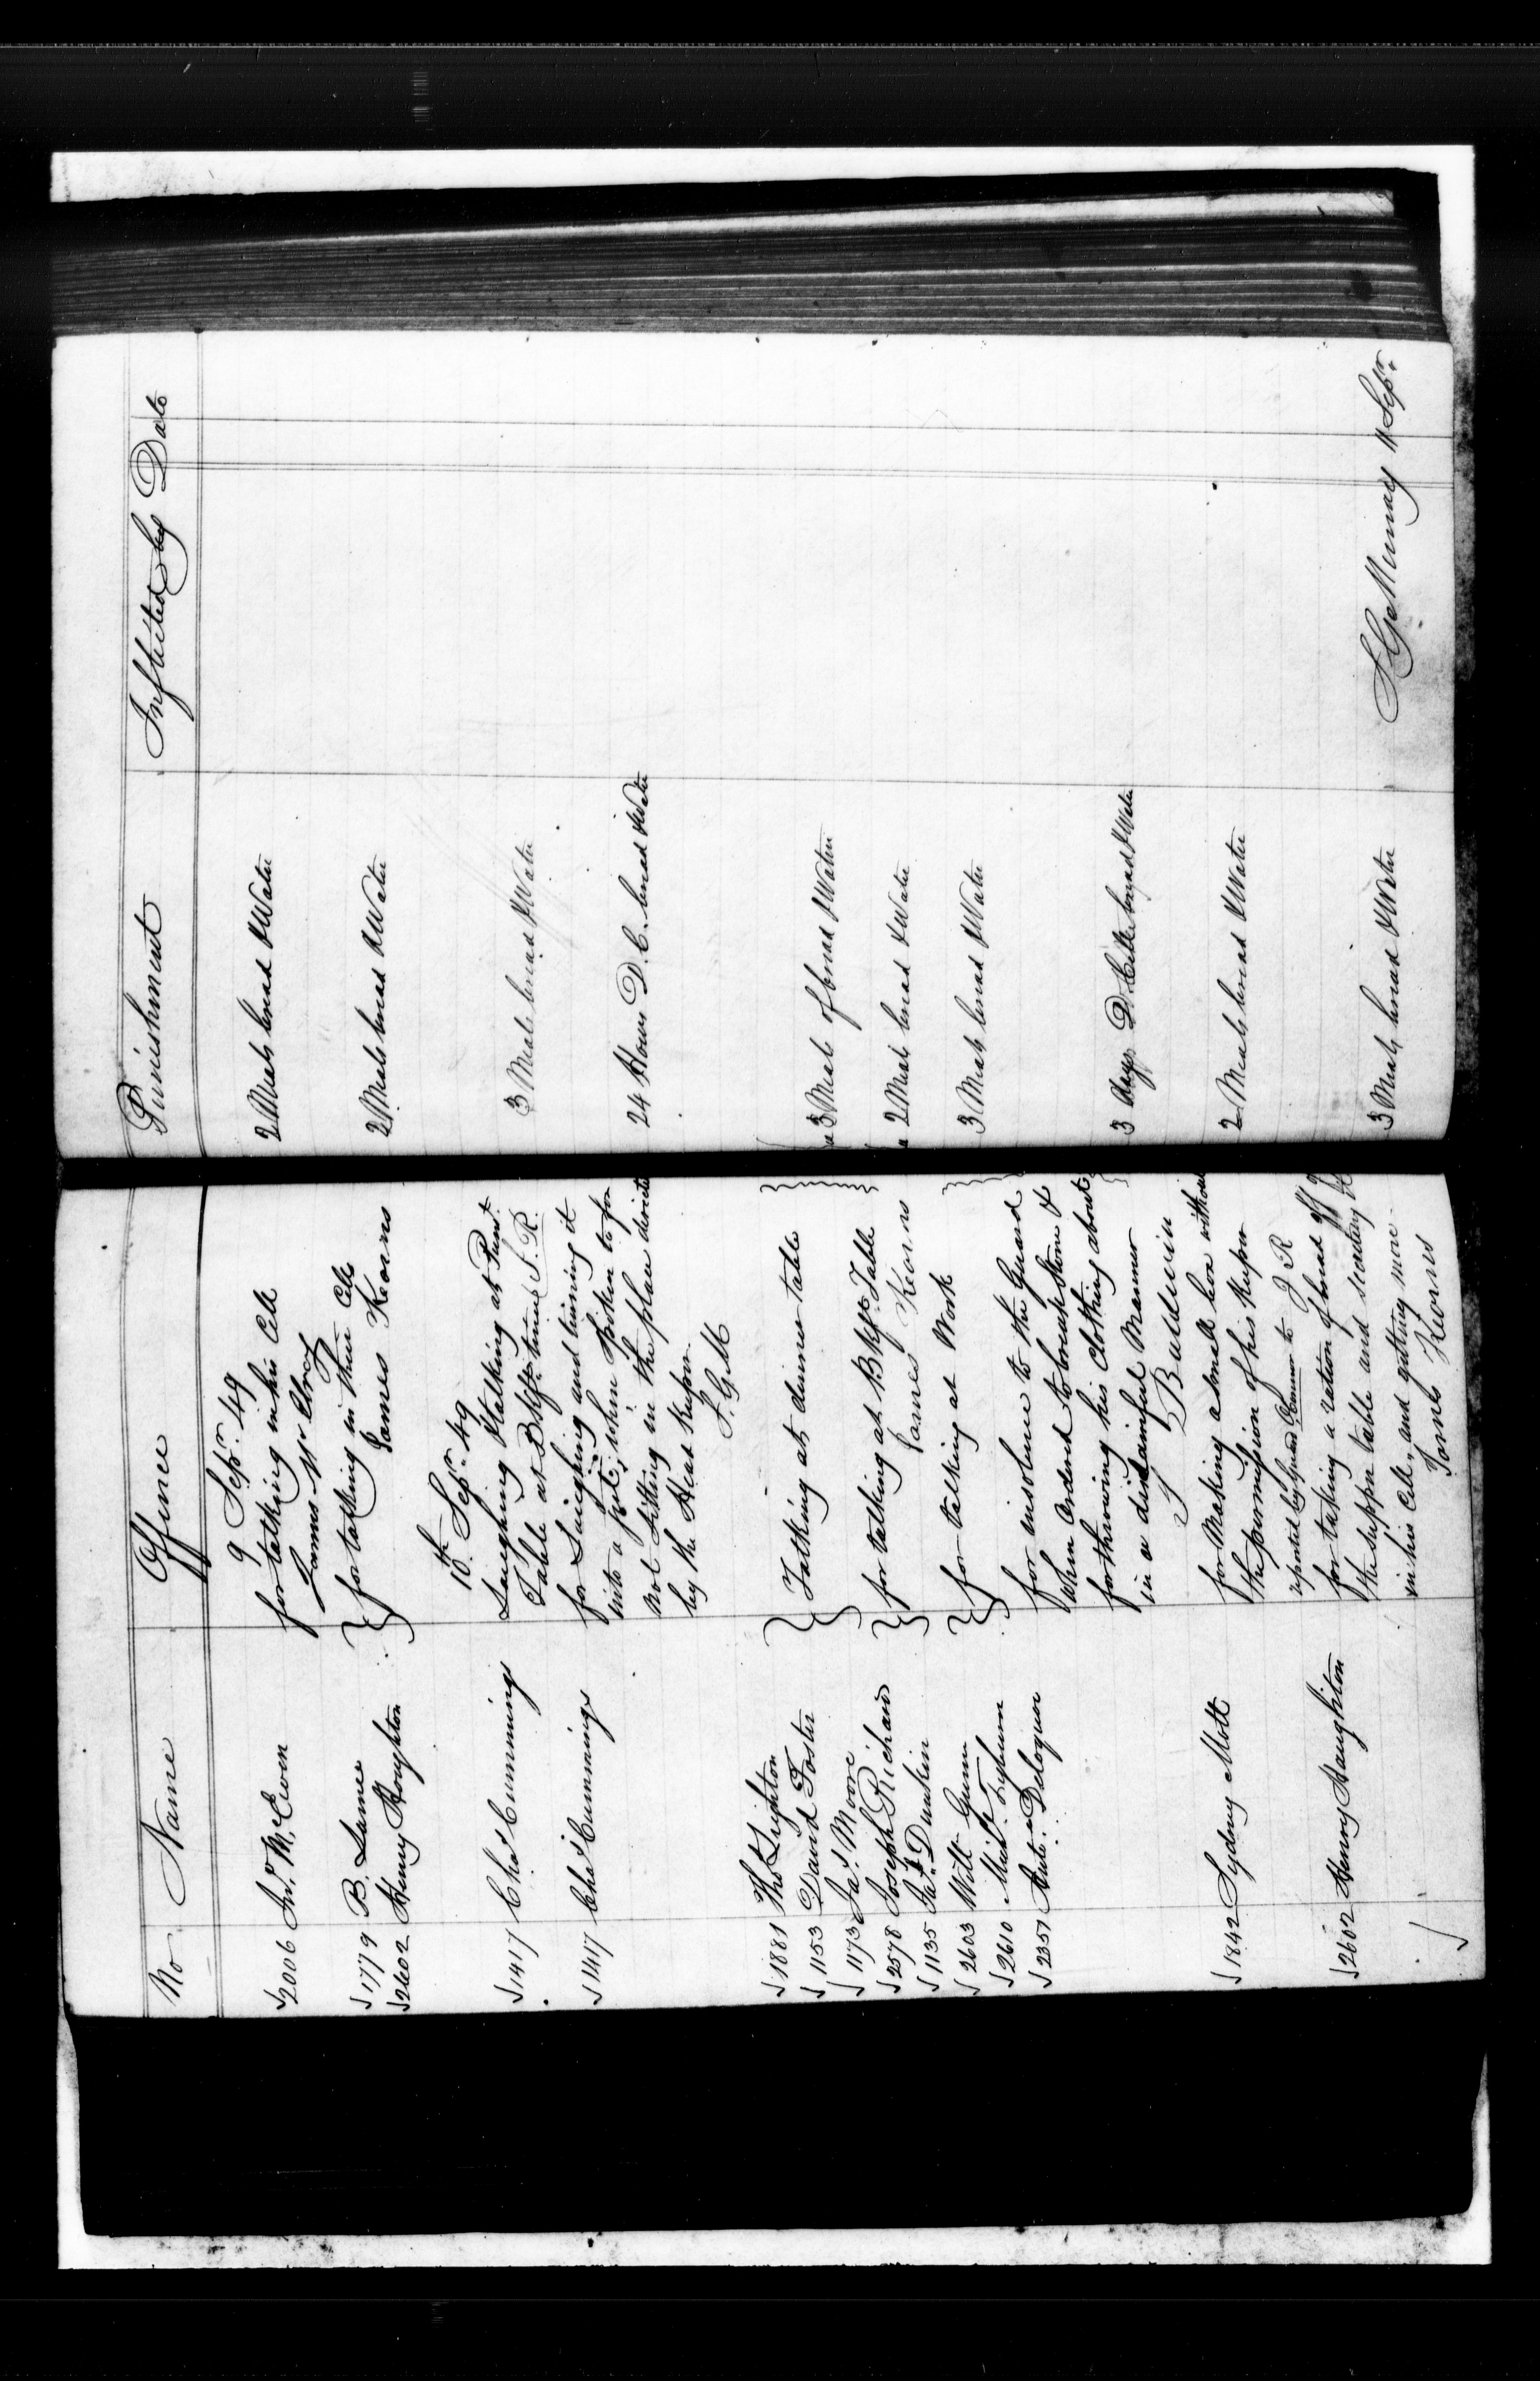 No Name Offence Punishment Inflicted by Date
9 Sepr. 49
2006 Jno. McEwen for talking in his Cell 2 Meals bread & Water
James McElroy
1779 B. Lamie
2602 Henry Houghton for talking in their Cells 2 Meals bread & Water
James Kearns
10th Sepr. 49
1417 Chas Cummings Laughing & talking at
Table at Bkft. time S. R. 3 Meals bread & Water
1417 Chas Cummings for Laughing and turning it
into a joke, when Spoken to for 24 Hours D. C. bread & Water
not Sitting in the place directed
by the Head Keeper
T. G. M
1881 Tho Lighton
1153 David Foster Talking at dinner table 3 Meals of bread & Water
1173 Jas. Moore
2578 Joseph Richard for talking at Bkft. Table 2 Meals bread & Water
1135 Jas. Dunkin James Kearns
2603 Willm Gunn for talking at Work 3 Meals bread & Water
2610 Michl
2351 Ante. for insolence to the Guard
When Ordered to break Stone &
for throwing his Clothing about 3 days D. Cell bread & Water
in a disdainful Manner
T Baldwin
1842 Sydney Mott for Making a small box without 2 Meals bread & Water
the permission of his Keeper
reported by Guard to J R
2602 Henry Haughton for taking a ration of bread off
the supper table and secreting 3 Meals bread & Water
in his Cell, and getting more
James Kearns
McMurray 11 Sepr.